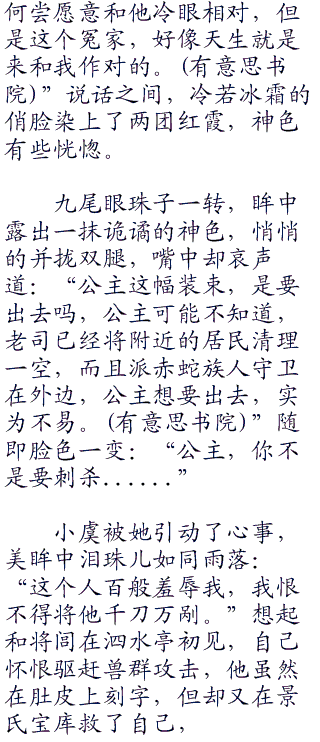 何尝愿意和他冷眼相对，但
是这个冤家，好像天生就是
来和我作对的。(有意思书
院)”说话之间，冷若冰霜的
俏脸染上了两团红霞，神色
有些恍惚。
九尾眼珠子一转，眸中
露出一抹诡谲的神色，悄悄
的并拢双腿，嘴中却哀声
道：“公主这幅装束，是要
出去吗，公主可能不知道，
老司已经将附近的居民清理
一空，而且派赤蛇族人守卫
在外边，公主想要出去，实
为不易。(有意思书院)”随
即脸色一变：“公主，你不
是要刺杀......”
小虞被她引动了心事，
美眸中泪珠儿如同雨落：
“这个人百般羞辱我，我恨
不得将他千刀万剐。”想起
和将闾在泗水亭初见，自己
怀恨驱赶兽群攻击，他虽然
在肚皮上刻字，但却又在景
氏宝库救了自己，